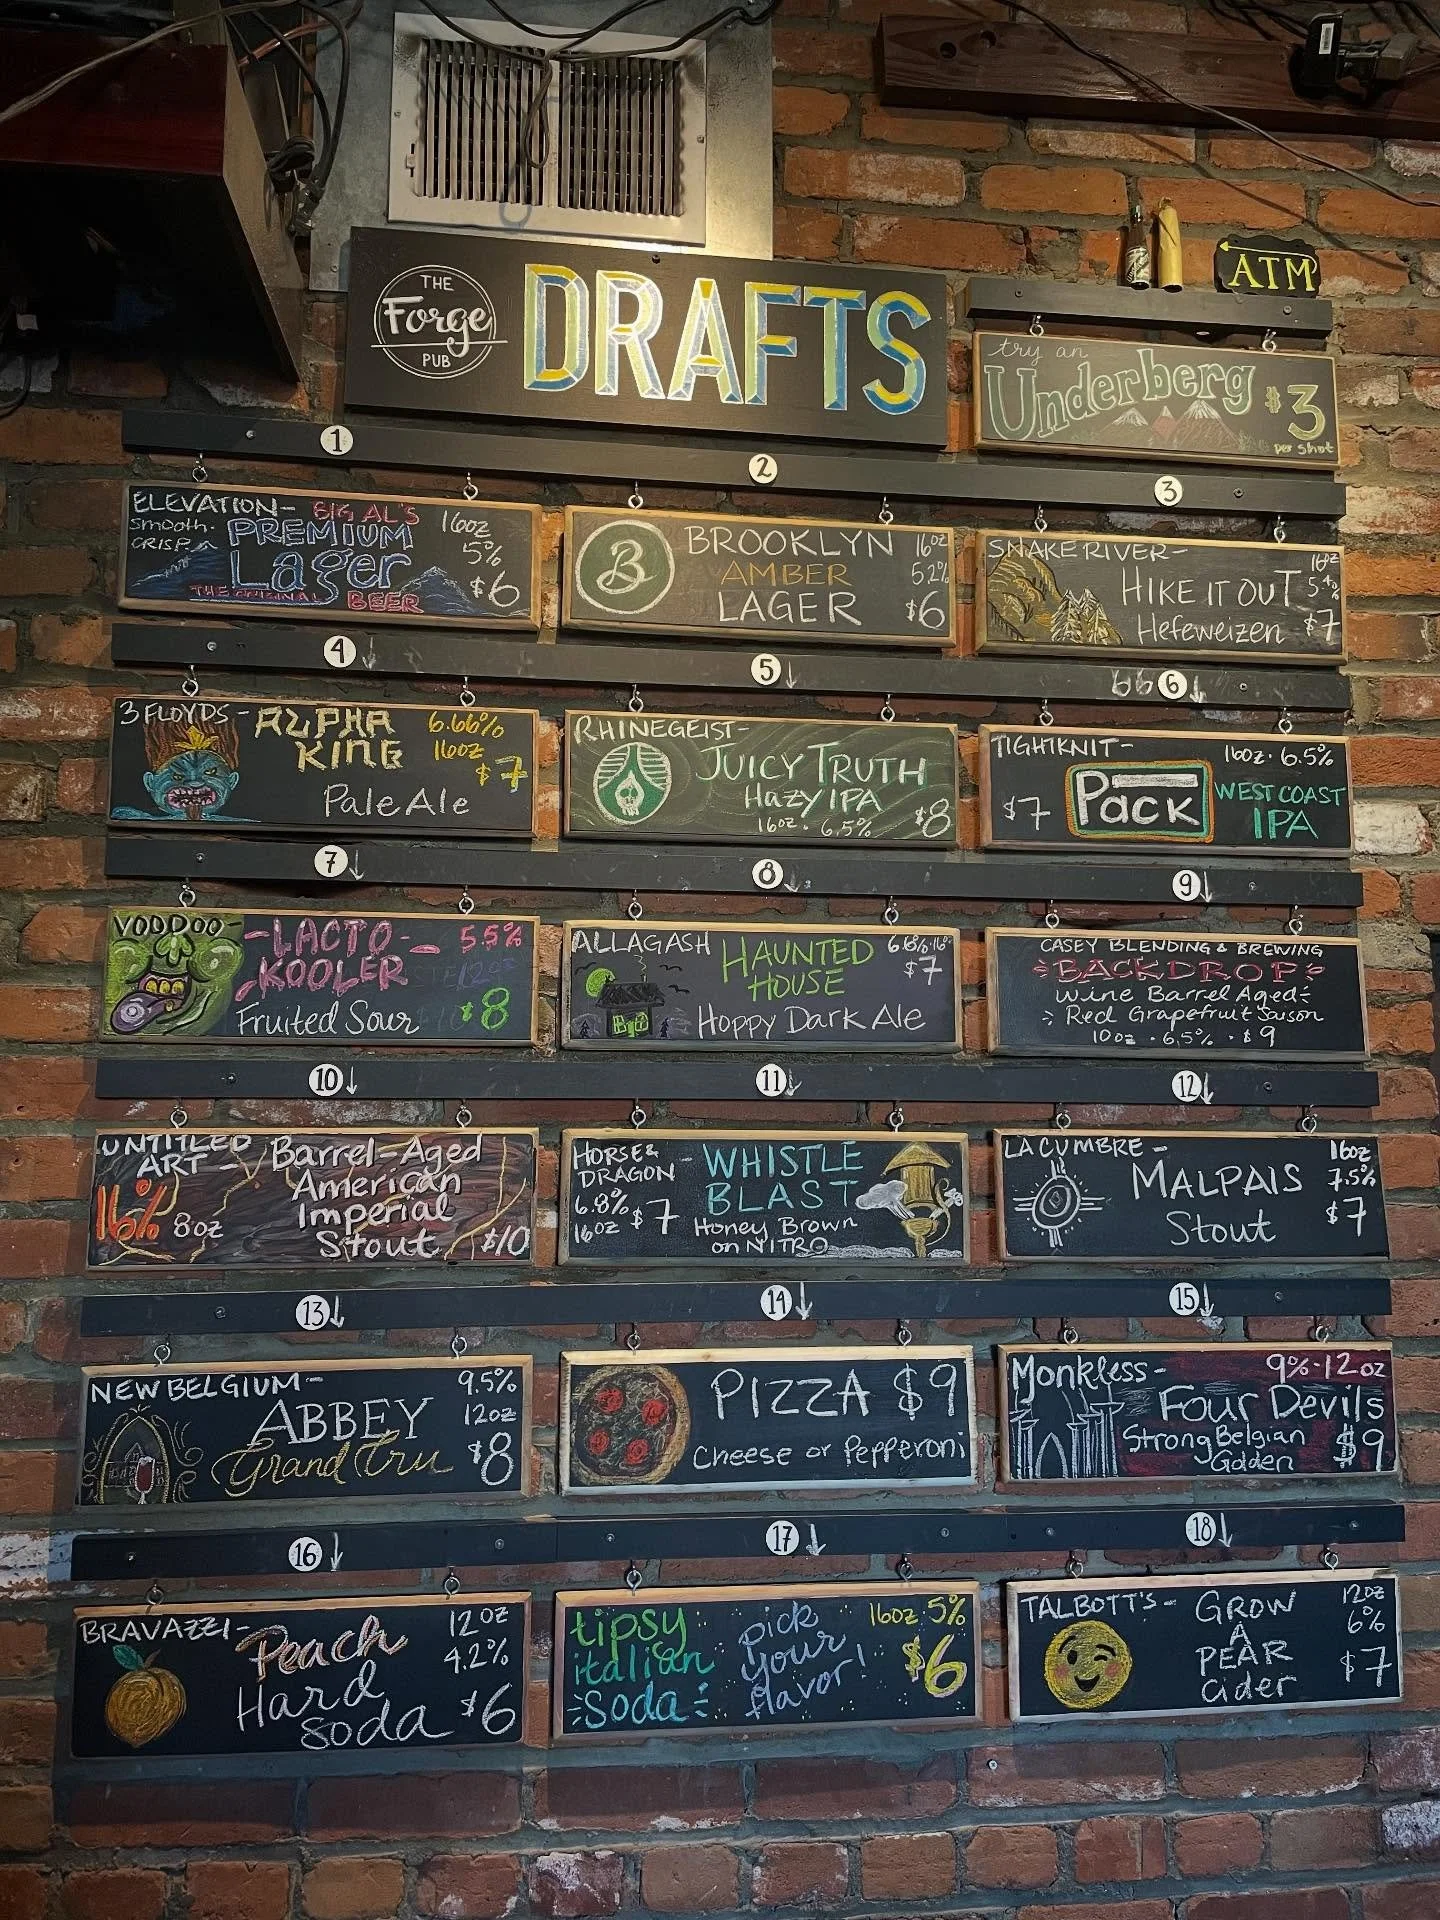 THE
Forge
PUB
DRAFTS
ATM
try an
Underberg $3
per shot
1
ELEVATION- BIG AL'S
smooth. CRISP.
PREMIUM
Lager
THE ORIGINAL BEER
16oz
5%
$6
2
B
BROOKLYN
AMBER
LAGER
16oz
5.2%
$6
3
SNAKE RIVER-
HIKE IT OUT
Hefeweizen
16oz
5.4%
$7
4
3 FLOYDS-
ALPHA
KING
Pale Ale
6.66%
16oz
$7
5
RHINEGEIST-
JUICY TRUTH
Hazy IPA
16oz. 6.5%
$8
6
TIGHTKNIT-
16oz. 6.5%
$7
PACK
WEST COAST
IPA
7
VOODOO-
-LACTO-
KOOLER
Fruited Sour
5.5%
12oz
$8
8
ALLAGASH
HAUNTED
HOUSE
Hoppy Dark Ale
6.6%
$7
9
CASEY BLENDING & BREWING
BACKDROP
Wine Barrel Aged
Red Grapefruit Saison
10oz. 6.5%. $9
10
UNTITLED
ART-
16% 8oz
Barrel-Aged
American
Imperial
Stout
$10
11
HORSE &
DRAGON-
6.8%
16oz $7
WHISTLE
BLAST
Honey Brown
on NITRO
12
LA CUMBRE-
MALPAIS
Stout
16oz
7.5%
$7
13
NEW BELGIUM-
ABBEY
Grand Cru
9.5%
12oz
$8
14
PIZZA $9
Cheese or Pepperoni
15
Monkless-
9%.12oz
Four Devils
Strong Belgian
Golden
$9
16
BRAVAZZI-
Peach
Hard
Soda
12oz
4.2%
$6
17
tipsy
italian
Soda
pick
your
flavor!
16oz 5%
$6
18
TALBOTT'S-
GROW
A
PEAR
Cider
12oz
6%
$7